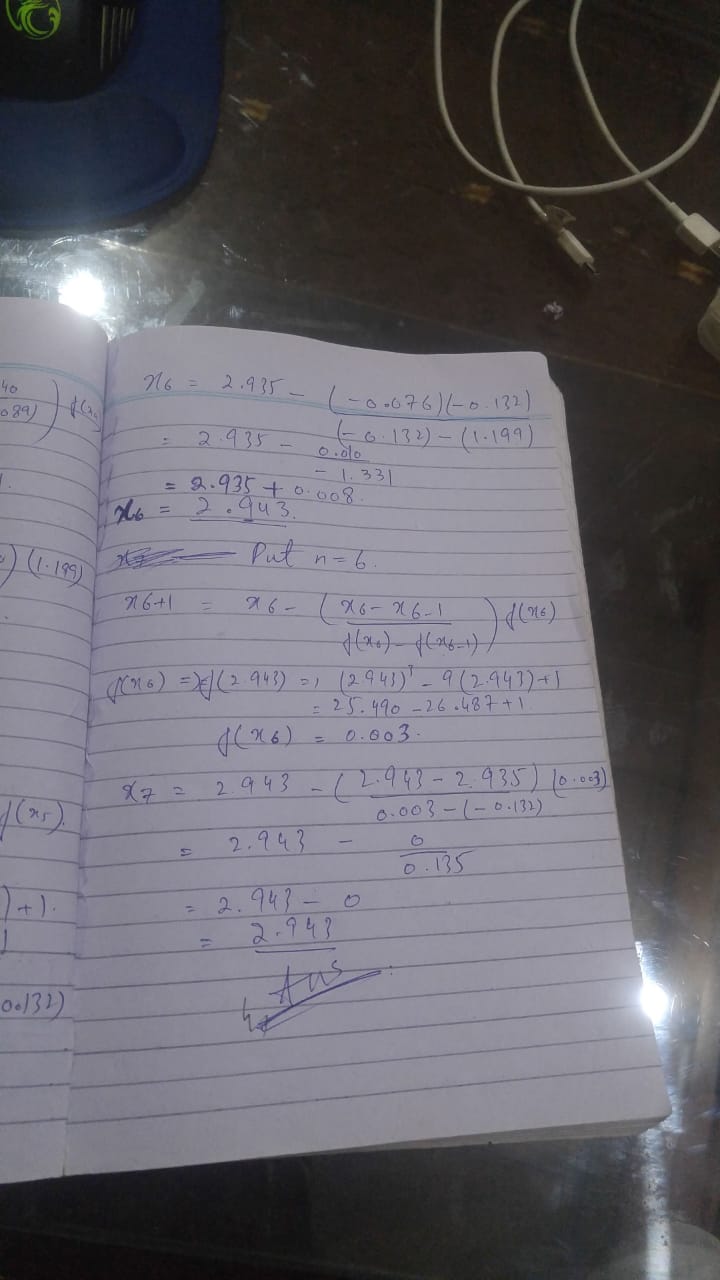 40
089) f(x
x6 = 2.935 - (-0.076)(-0.132)
(-0.132) - (1.199)
= 2.935 - 0.010
- 1.331
= 2.935 + 0.008.
x6 = 2.943.
) (1.199)
Put n=6.
x6+1 = x6 - ( x6 - x6-1 ) f(x6)
f(x6) - f(x6-1)
f(x6) => f(2.943) =, (2.943)³ - 9(2.943)+1
= 25.490 - 26.487+1.
f(x6) = 0.003.
x7 = 2.943 - (2.943 - 2.935) (0.003)
0.003-(-0.132)
f(x5).
= 2.943 - 0
0.135
)+1.
= 2.943 - 0
= 2.943
Ans
0.132)